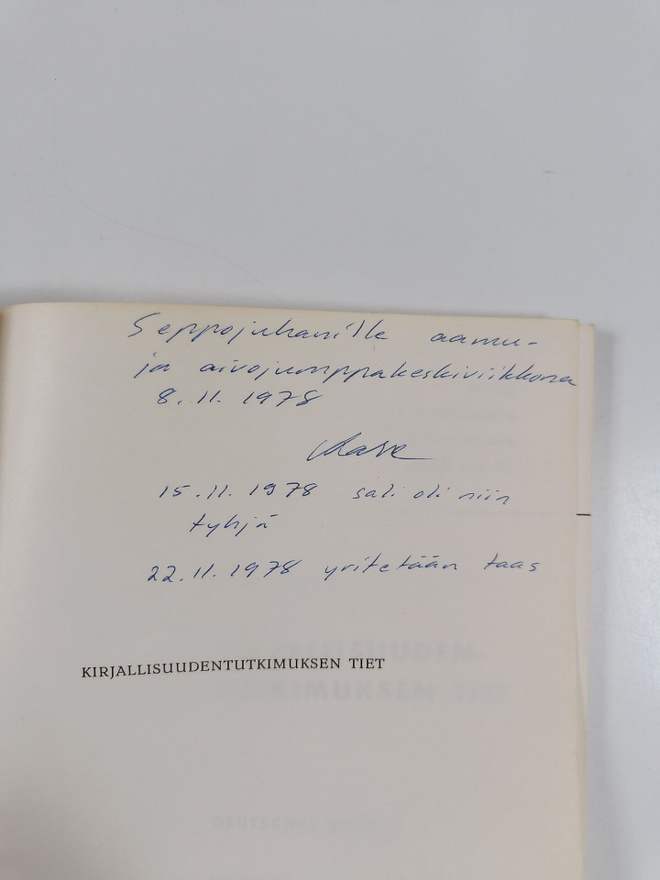 Seppojuhanille aamu-
ja aivojumppakeskiviikkona
8.11.1978
15.11.1978 sali oli niin
tyhjä
22.11.1978 yritetään taas
KIRJALLISUUDENTUTKIMUKSEN TIET